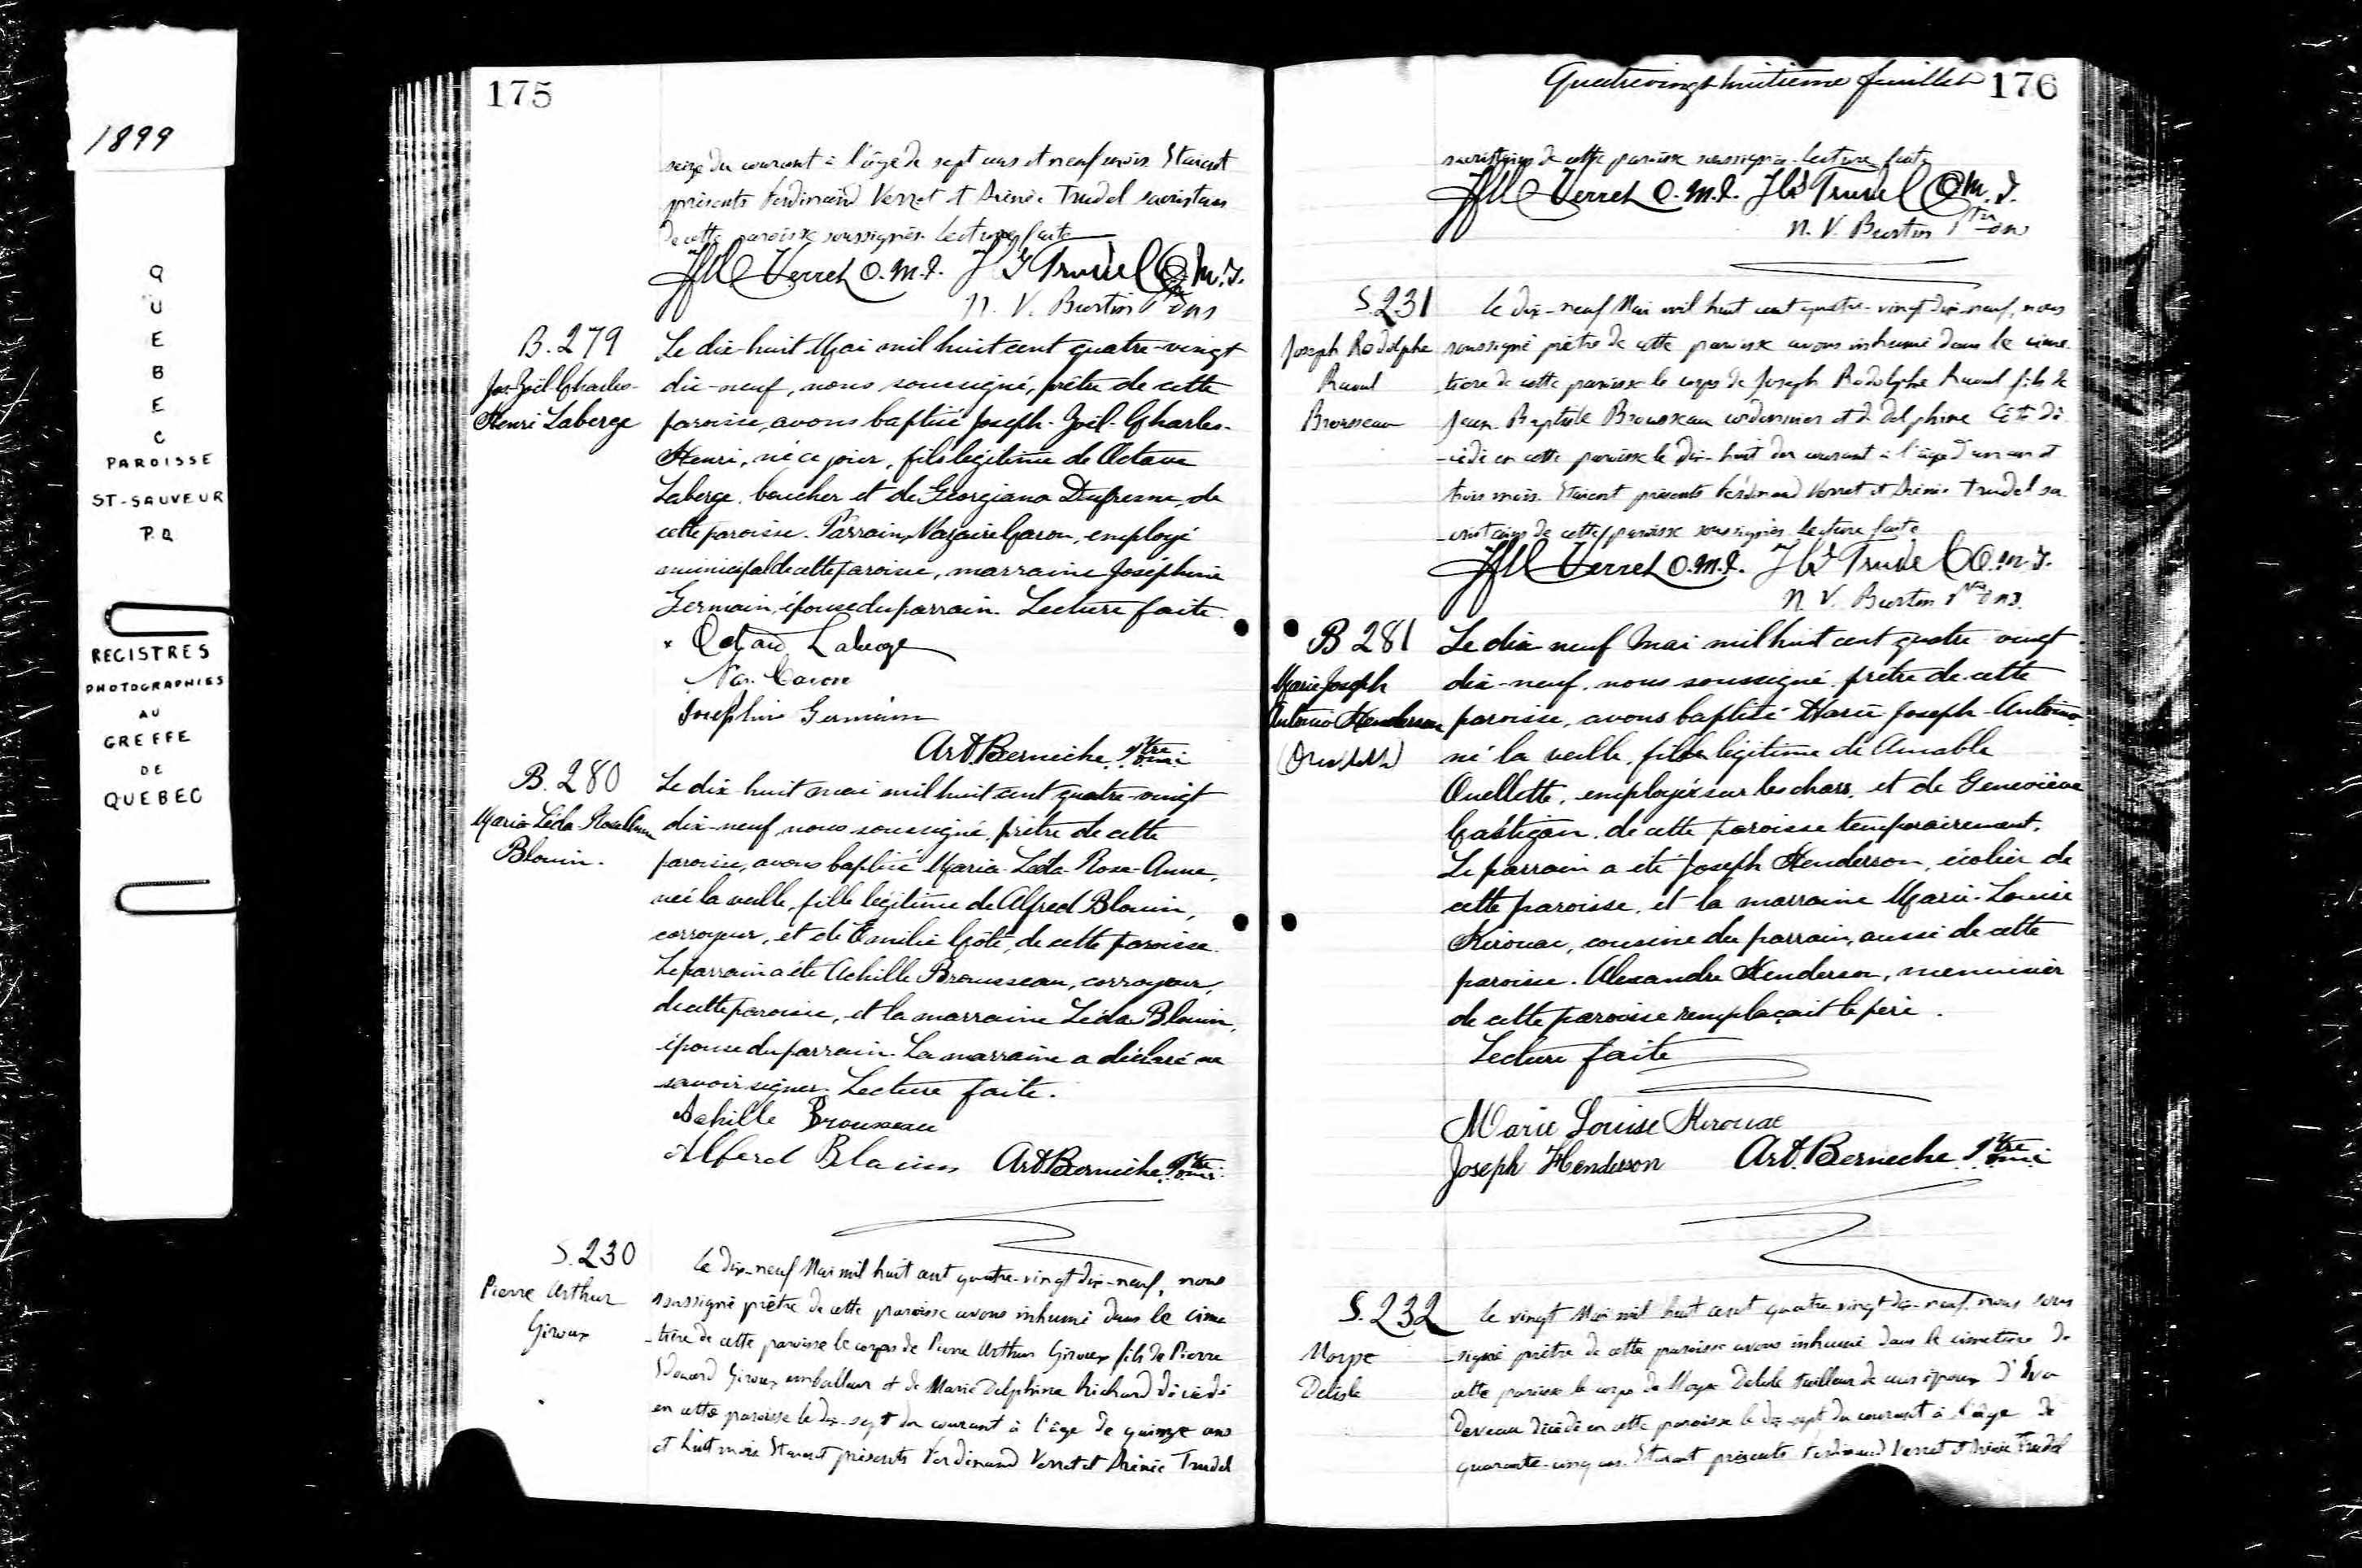 1899
QUEBEC
PAROISSE
ST-SAUVEUR
P.Q
REGISTRES
PHOTOGRAPHIES
AU
GREFFE
DE
QUEBEC
175
seize du courant à l'âge de sept ans et neuf mois Etaient
présents Ferdinand Verret et Irénée Trudel sacristains
de cette paroisse soussignés. Lecture faite
Verret O.M.I. Trudel O.M.I.
N. V. Burtin Ptre oms
B. 279
Jos. Joël Charles-
Henri Laberge
Le dix-huit Mai mil huit cent quatre-vingt
dix-neuf, nous soussigné, prêtre de cette
paroisse, avons baptisé Joseph-Joël-Charles-
Henri, né ce jour, fils légitime de Octave
Laberge, boucher et de Georgiana Dufresne, de
cette paroisse. Parrain, Nazaire Caron, employé
municipal de cette paroisse, marraine Joséphine
Germain, épouse du parrain. Lecture faite.
Octave Laberge
Naz. Caron
Joséphine Germain
Art. Bernèche, Ptre o.m.i.
B. 280
Marie Léda Rose Anne
Blouin.
Le dix-huit mai mil huit cent quatre-vingt
dix-neuf, nous soussigné, prêtre de cette
paroisse, avons baptisé Marie-Léda-Rose-Anne,
née la veille, fille légitime de Alfred Blouin,
corroyeur, et de Emilie Côté, de cette paroisse.
Le parrain a été Achille Brousseau, corroyeur,
de cette paroisse, et la marraine Léda Blouin,
épouse du parrain. La marraine a déclaré ne
savoir signer. Lecture faite.
Achille Brousseau
Alferd Blouin Art. Bernèche Ptre o.m.i.
S. 230
Pierre Arthur
Giroux
Le dix-neuf Mai mil huit cent quatre-vingt dix-neuf, nous
soussigné prêtre de cette paroisse avons inhumé dans le cime
-tière de cette paroisse le corps de Pierre Arthur Giroux fils de Pierre
Edouard Giroux emballeur et de Marie Delphine Richard décédé
en cette paroisse le dix-sept du courant à l'âge de quinze ans
et huit mois Etaient présents Ferdinand Verret et Irénée Trudel
Quatrevingt-huitième feuillet 176
sacristains de cette paroisse soussignés. Lecture faite
Verret O.M.I. Trudel O.M.I.
N. V. Burtin Ptre oms
S. 231
Joseph Rodolphe
Raoul
Brousseau
Le dix-neuf Mai mil huit cent quatre-vingt dix-neuf, nous
soussigné prêtre de cette paroisse avons inhumé dans le cime
tière de cette paroisse le corps de Joseph Rodolphe Raoul fils de
Jean-Baptiste Brousseau cordonnier et de Delphine Côté dé
-cédé en cette paroisse le dix-huit du courant à l'âge d'un an et
trois mois. Etaient présents Ferdinand Verret et Irénée Trudel sa
-cristains de cette paroisse soussignés. Lecture faite
Verret O.M.I. Trudel O.M.I.
N. V. Burtin Ptre oms.
B 281
Marie Joseph
Antonio Henderson
(Ouellette)
Le dix neuf Mai mil huit cent quatre vingt
dix-neuf, nous soussigné, prêtre de cette
paroisse, avons baptisé Marie-Joseph-Antonio
né la veille, fils légitime de Amable
Ouellette, employé sur les chars, et de Geneviève
Gastigan, de cette paroisse temporairement.
Le parrain a été Joseph Henderson, écolier de
cette paroisse, et la marraine Marie-Louise
Kirouac, cousine du parrain, aussi de cette
paroisse. Alexandre Henderson, menuisier
de cette paroisse remplaçait le père.
Lecture faite
Marie Louise Kirouac
Joseph Henderson Art. Bernèche Ptre o.m.i
S. 232
Moyse
Delisle
Le vingt Mai mil huit cent quatre vingt dix-neuf, nous sous
-signé prêtre de cette paroisse avons inhumé dans le cimetière de
cette paroisse le corps de Moyse Delisle tailleur de cuir époux d'Eva
Deveau décédé en cette paroisse le dix-sept du courant à l'âge de
quarante-cinq ans. Etaient présents Ferdinand Verret et Irénée Trudel